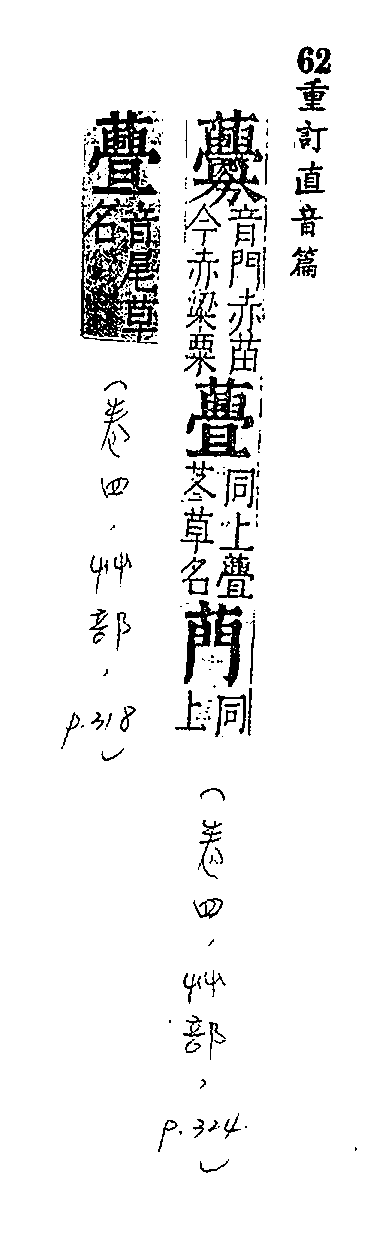 62重訂直音篇
虋
音門赤苗
今赤粱粟
同上
苳草名
菛
同
上
(卷四,艸部,p.324)
音尾草
名
(卷四,艸部,p.318)